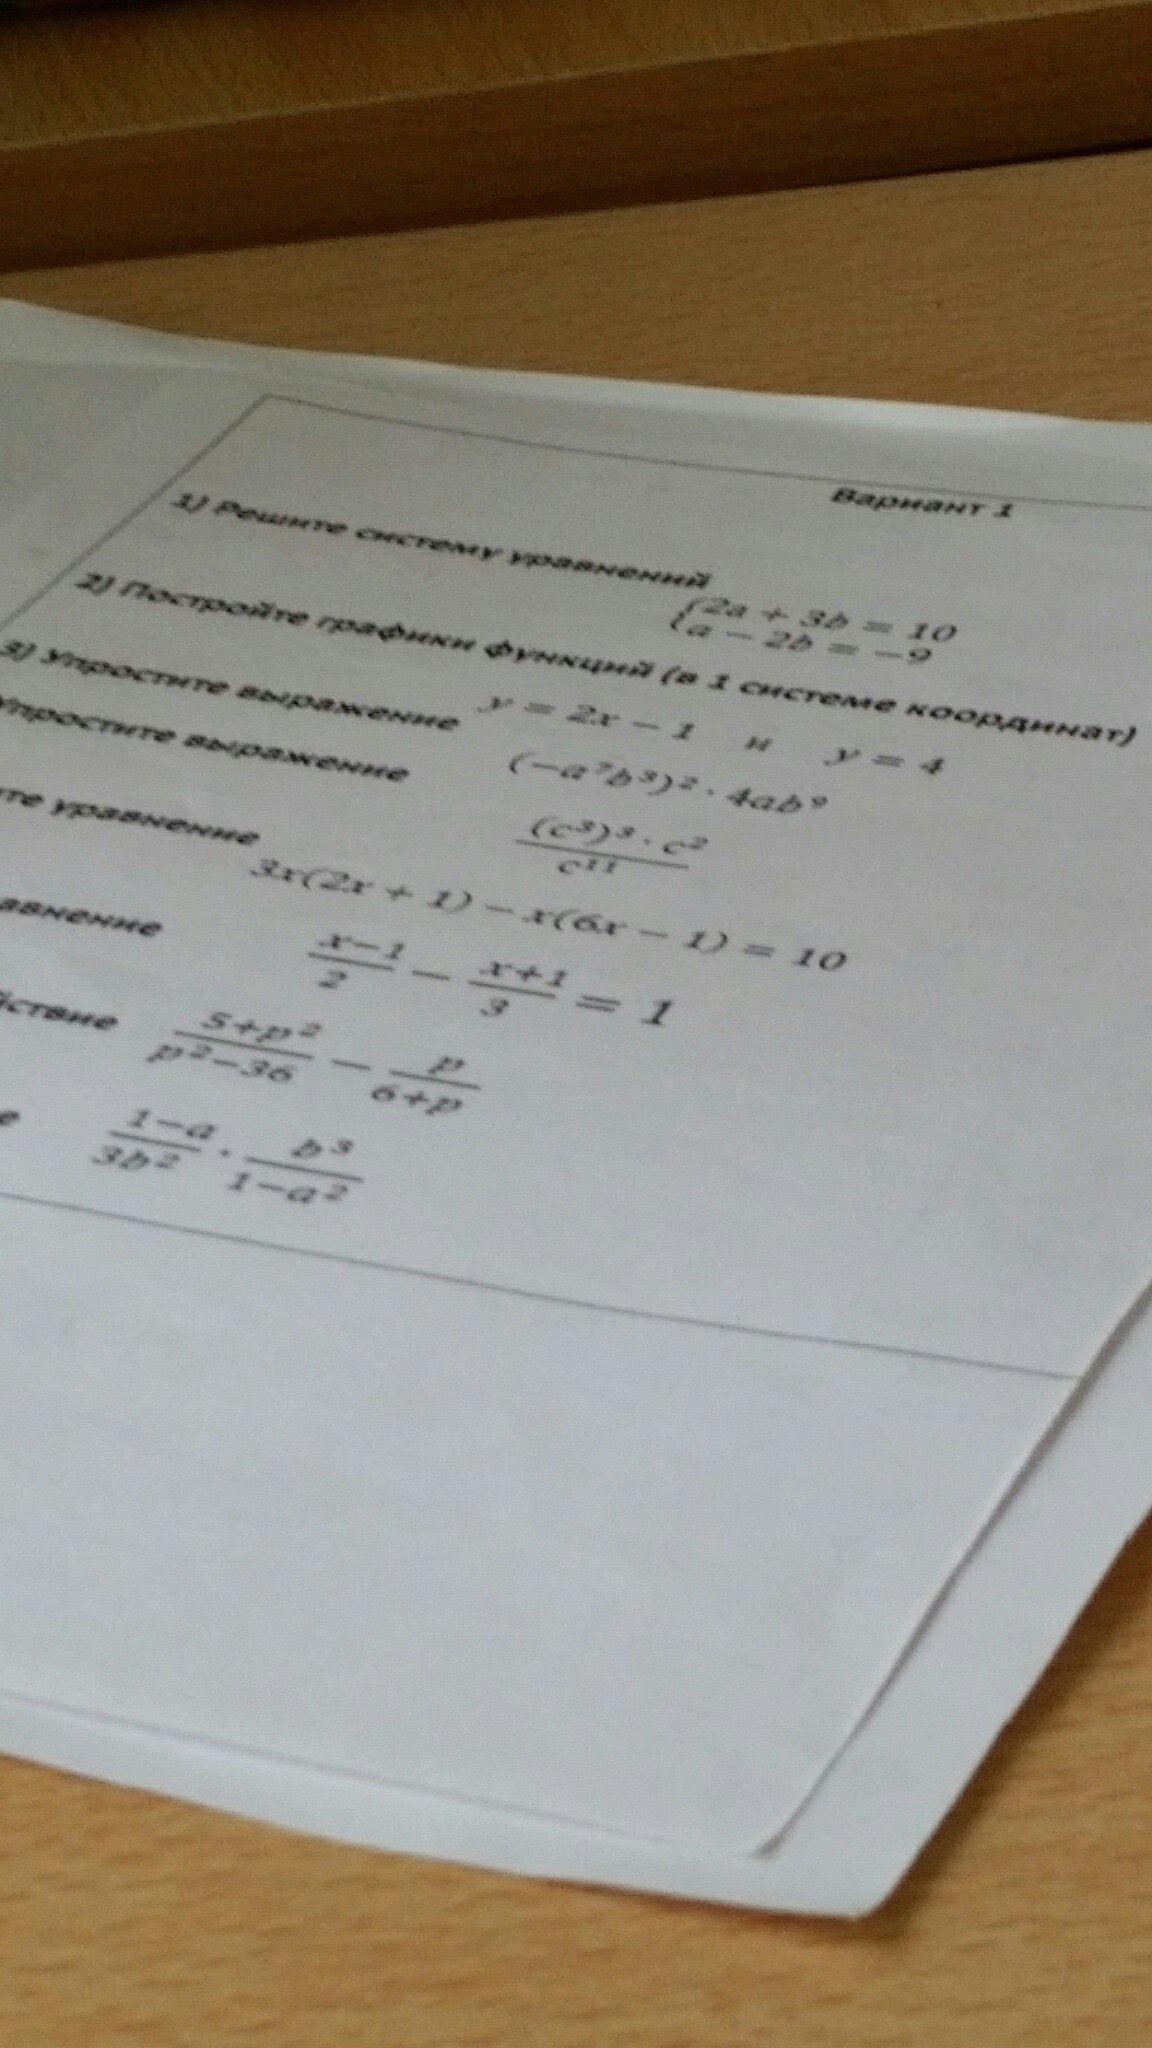 Вариант 1
1) Решите систему уравнений
{2a + 3b = 10
a − 2b = −9
2) Постройте графики функций (в 1 системе координат)
y = 2x − 1 и y = 4
3) Упростите выражение (−a⁷b³)² · 4ab⁹
Упростите выражение (c³)³ · c² / c¹¹
те уравнение 3x(2x + 1) − x(6x − 1) = 10
авнение x−1/2 − x+1/3 = 1
йствие 5+p²/p²−36 − p/6+p
е 1−a/3b² · b³/1−a²